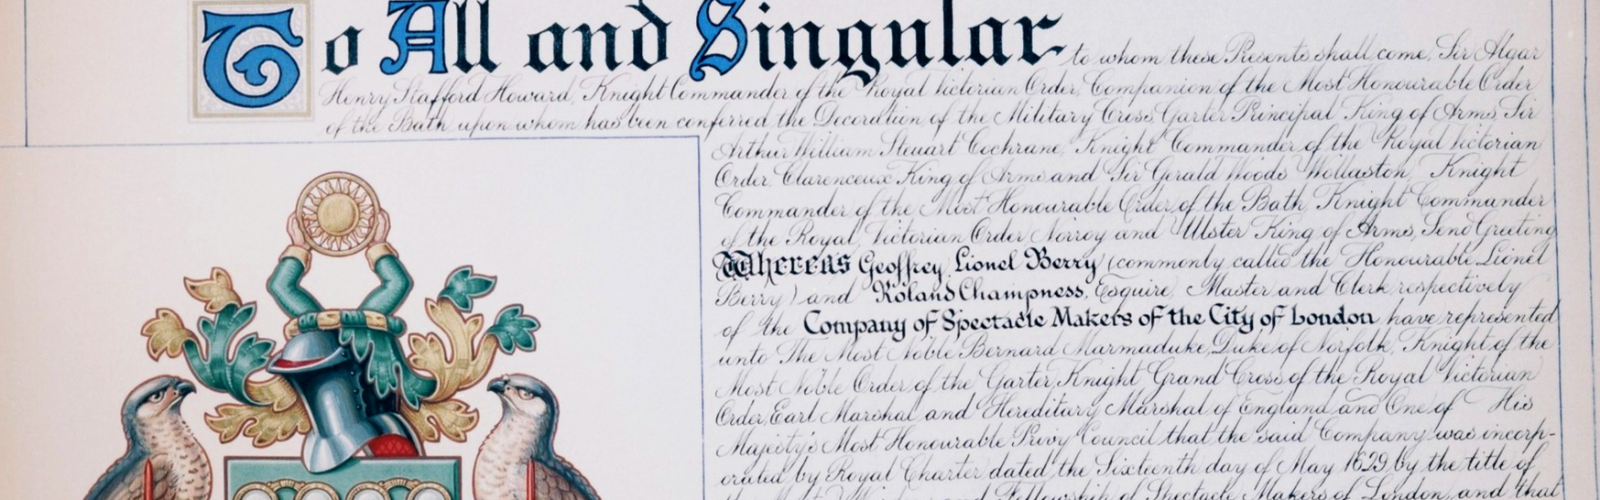 To All and Singular to whom these Presents shall come, Sir Algar
Henry Stafford Howard, Knight Commander of the Royal Victorian Order, Companion of the Most Honourable Order
of the Bath upon whom has been conferred the Decoration of the Military Cross, Garter Principal King of Arms, Sir
Arthur William Steuart Cochrane, Knight Commander of the Royal Victorian
Order, Clarenceux King of Arms and Sir Gerald Woods Wollaston, Knight
Commander of the Most Honourable Order of the Bath, Knight Commander
of the Royal Victorian Order Norroy and Ulster King of Arms, Send Greeting
Whereas Geoffrey Lionel Berry (commonly called the Honourable Lionel
Berry) and Roland Champness, Esquire, Master and Clerk respectively
of the Company of Spectacle Makers of the City of London have represented
unto The Most Noble Bernard Marmaduke, Duke of Norfolk, Knight of the
Most Noble Order of the Garter, Knight Grand Cross of the Royal Victorian
Order, Earl Marshal and Hereditary Marshal of England and One of His
Majesty's Most Honourable Privy Council that the said Company was incorp-
orated by Royal Charter dated the Sixteenth day of May 1629 by the title of
and Fellowship of Spectacle Makers of London, and that